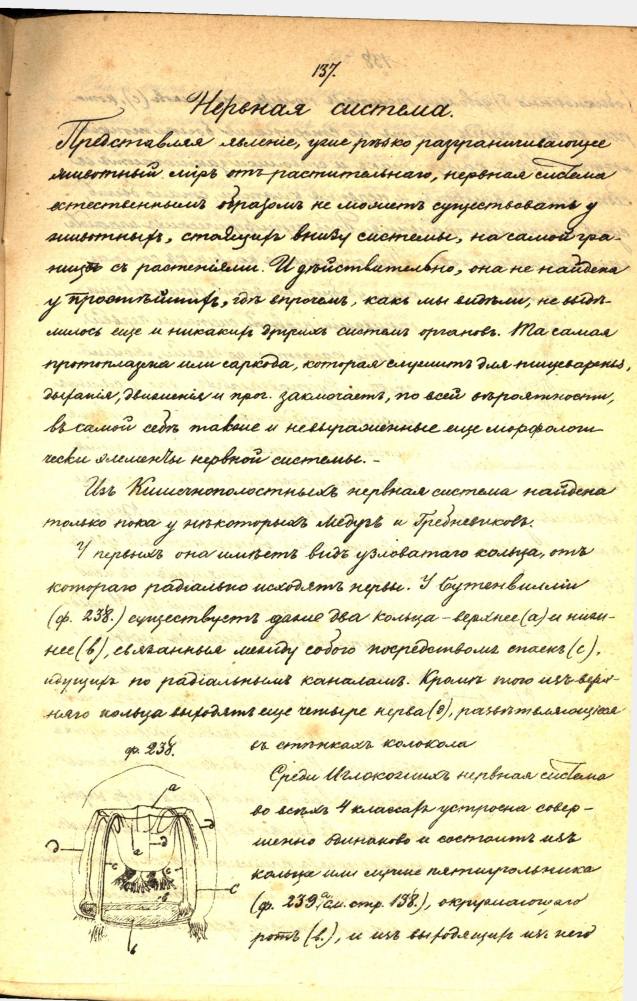 137.
Нервная система.
Представляя явленіе, уже рѣзко разграничивающее
животный міръ отъ растительнаго, нервная система
естественнымъ образомъ не можетъ существовать у
животныхъ, стоящихъ внизу системы, на самой гра-
ницѣ съ растеніями. И дѣйствительно, она не найдена
у простѣйшихъ, гдѣ впрочемъ, какъ мы видѣли, не выдѣ-
лилось еще и никакихъ другихъ системъ органовъ. Та самая
протоплазма или саркода, которая служитъ для пищеваренья,
дыханія, движенія и проч. заключаетъ, по всей вѣроятности,
въ самой себѣ также и невыраженные еще морфологи-
чески элементы нервной системы. -
Изъ Кишечнополостныхъ нервная система найдена
только пока у нѣкоторыхъ Медузъ и Гребневиковъ.
У первыхъ она имѣетъ видъ узловатаго кольца, отъ
котораго радіально исходятъ нервы. У Бугенвилліи
(ф. 238.) существуетъ даже два кольца - верхнее (а) и ниж-
нее (в), связанныя между собою посредствомъ спаекъ (с),
идущихъ по радіальнымъ каналамъ. Кромѣ того изъ верх-
няго кольца выходятъ еще четыре нерва (д), развѣтвляющіеся
въ стѣнкахъ колокола
ф. 238.
а
д
д
а
д
с
с
в
с
в
Среди Иглокожихъ нервная система
во всѣхъ 4 классахъ устроена совер-
шенно одинаково и состоитъ изъ
кольца или лучше пятиугольника
(ф. 239, см. стр. 138.), окружающаго
ротъ (в.), и изъ выходящихъ изъ него